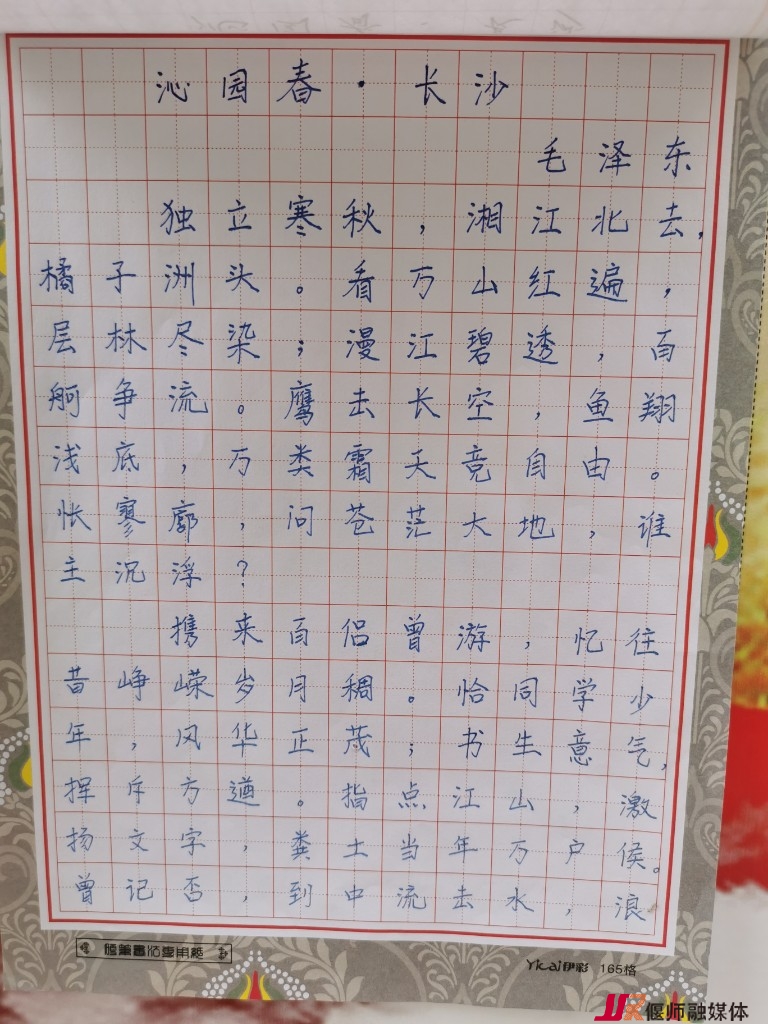 沁园春·长沙
毛泽东
独立寒秋，湘江北去，
橘子洲头。看万山红遍，
层林尽染；漫江碧透，百
舸争流。鹰去长空，鱼翔
浅底，万类霜天竞自由。
怅寥廓，问苍茫大地，谁
主沉浮？
携来百侣曾游，忆往
昔峥嵘岁月稠。恰同学少
年，风华正茂；书生意气，
挥斥方遒。指点江山，激
扬文字，粪土当年万户侯。
曾记否，到中流去水，浪
硬筆書法專用紙
伊彩 165格
偃师融媒体